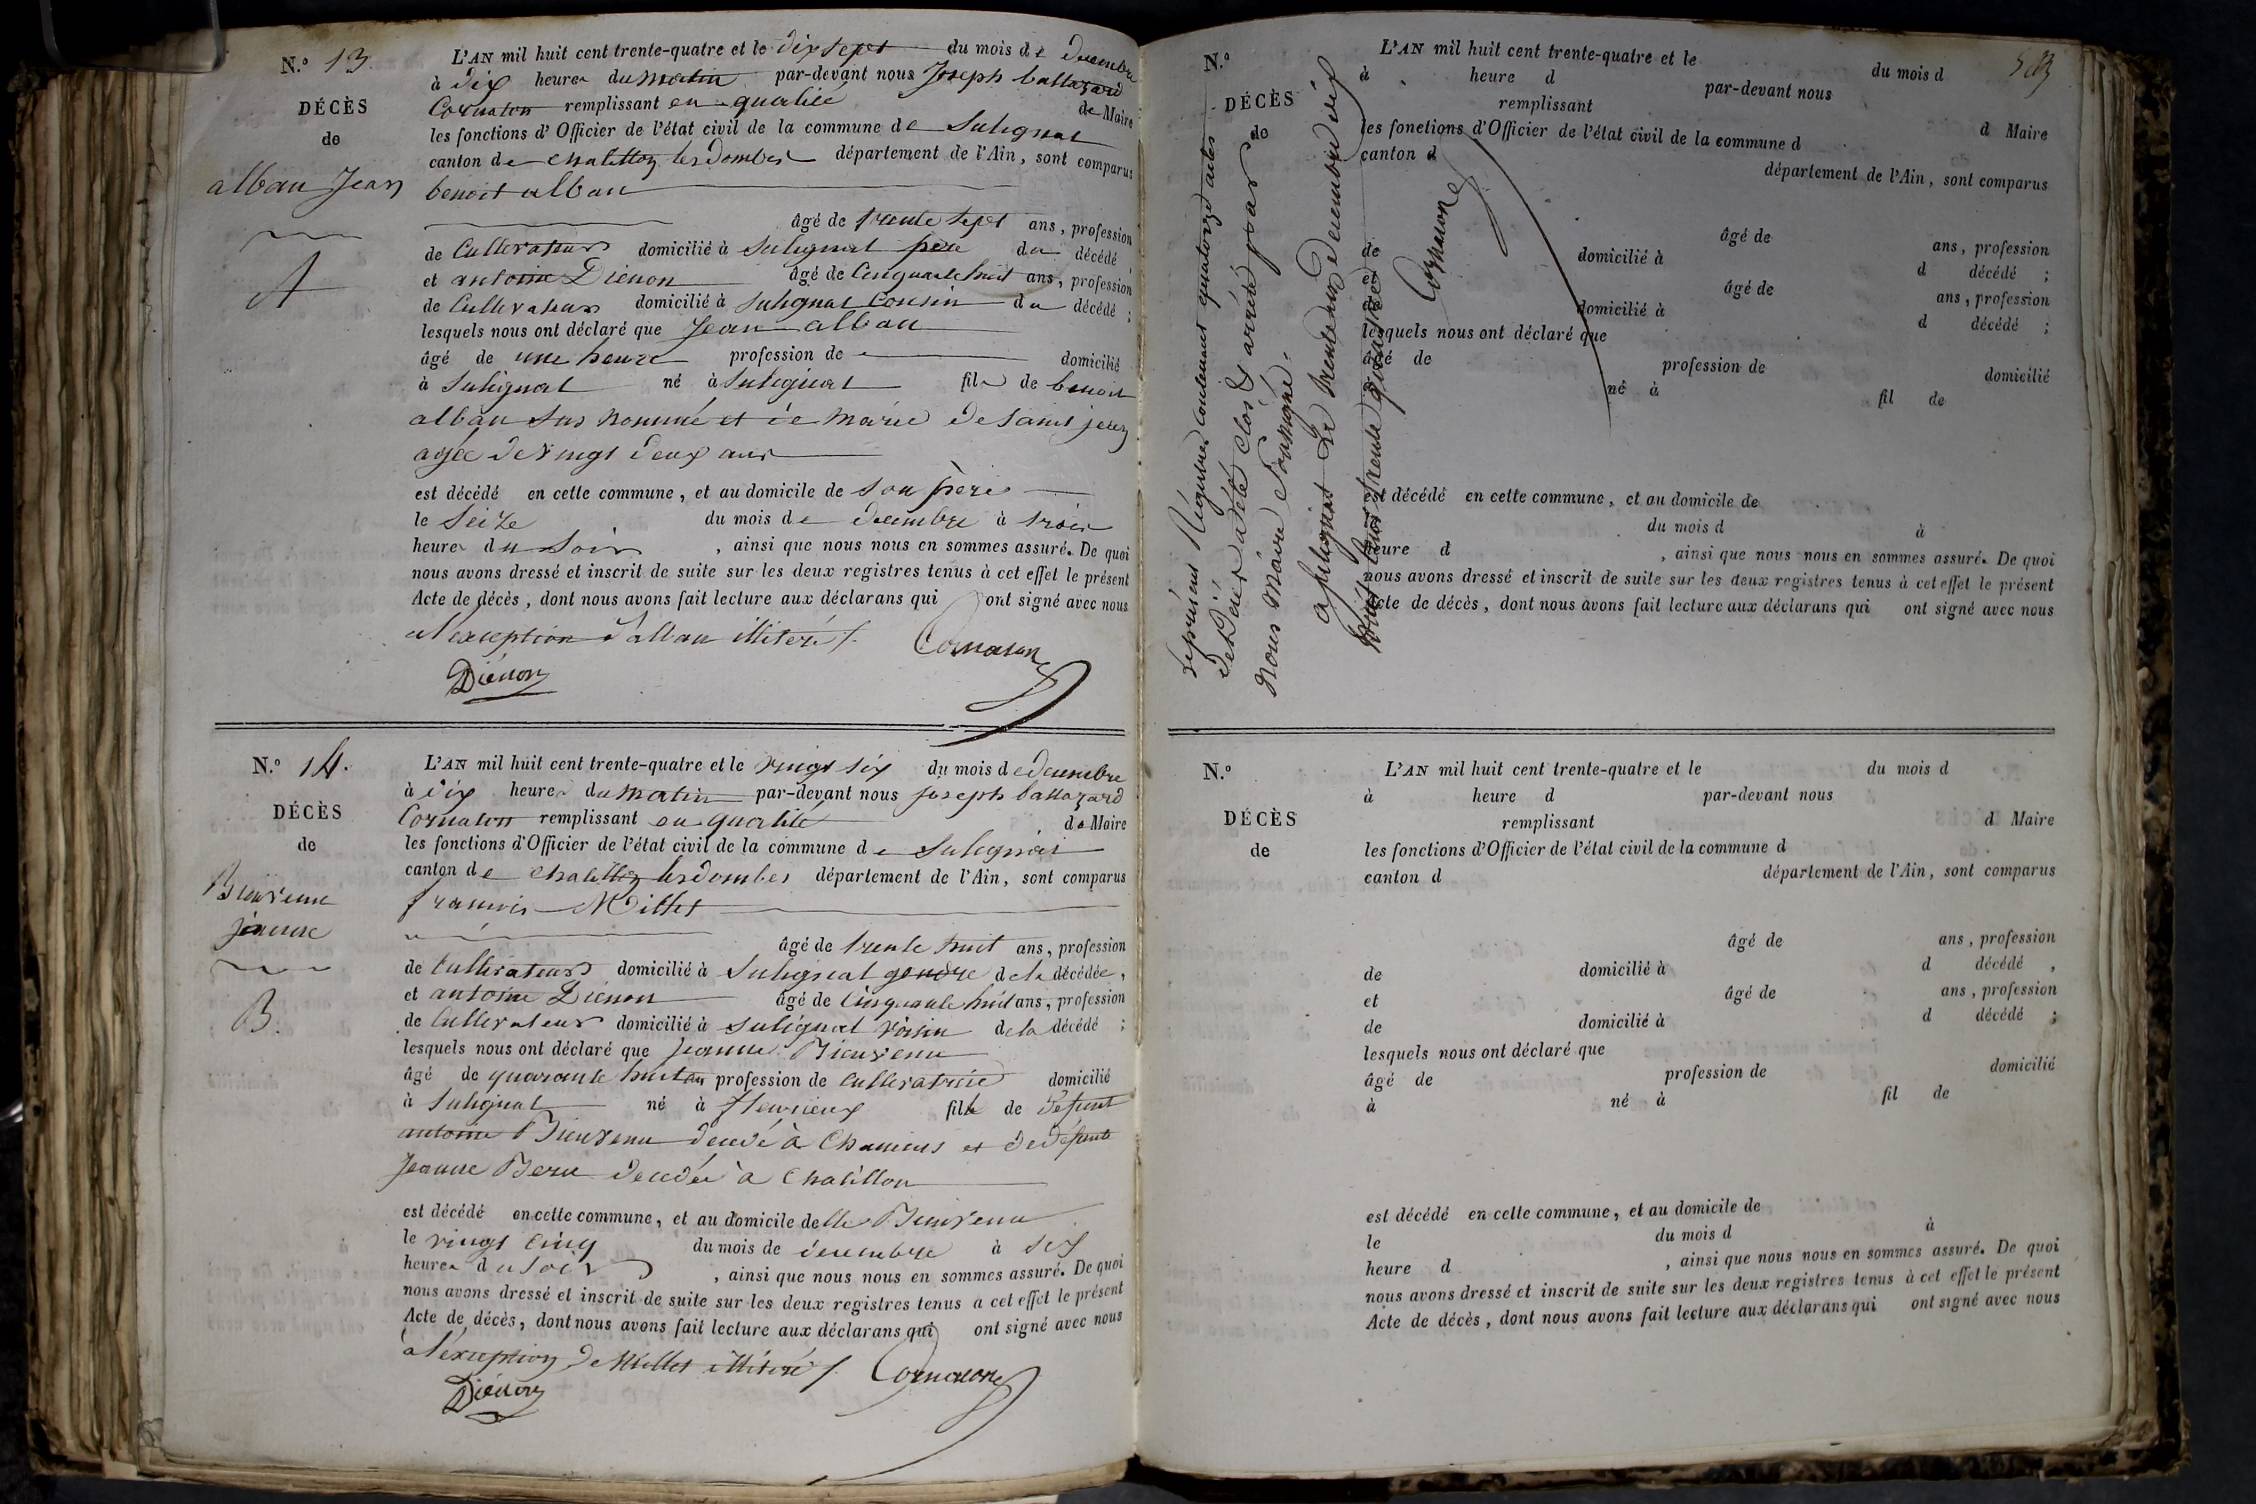 N.º 13.
DÉCÈS
de
alban Jean
A
L'AN mil huit cent trente-quatre et le dix sept du mois de decembre
à dix heures du matin par-devant nous Joseph baltazard
Cornaton remplissant en qualité de Maire
les fonctions d'Officier de l'état civil de la commune de Sulignat
canton de chatillon les dombes département de l'Ain, sont comparus
benoit alban
âgé de trente sept ans, profession
de Cultivateur domicilié à Sulignat père du décédé,
et antoine Diénon âgé de Cinquante huit ans, profession
de Cultivateur domicilié à Sulignat Cousin du décédé ;
lesquels nous ont déclaré que Jean alban
âgé de une heure profession de domicilié
à Sulignat né à Sulignat fils de benoit
alban sus nommé et de marie de saint jean
agée de vingt deux ans
est décédé en cette commune, et au domicile de son père
le Seize du mois de decembre à trois
heures du soir, ainsi que nous nous en sommes assuré. De quoi
nous avons dressé et inscrit de suite sur les deux registres tenus à cet effet le présent
Acte de décès, dont nous avons fait lecture aux déclarans qui ont signé avec nous
à l'exception d'alban illiteré /.
Cornaton
Diénon
N.º 14.
DÉCÈS
de
Bienvenu
jeanne
B.
L'AN mil huit cent trente-quatre et le vingt six du mois de decembre
à dix heures du matin par-devant nous joseph baltazard
Cornaton remplissant en qualité de Maire
les fonctions d'Officier de l'état civil de la commune de Sulignat
canton de chatillon les dombes département de l'Ain, sont comparus
francois Millet
âgé de trente huit ans, profession
de Cultivateur domicilié à Sulignat gendre de la décédée,
et antoine Diénon âgé de Cinquante huit ans, profession
de Cultivateur domicilié à Sulignat voisin de la décédé ;
lesquels nous ont déclaré que jeanne Bienvenu
âgé de quarante huit ans profession de Cultivatrice domicilié
à Sulignat né à fleurieux fille de defunt
antoine Bienvenu decedé à et de defunte
Jeanne decedée à Chatillon
est décédé en cette commune, et au domicile de lle Bienvenu
le vingt cinq du mois de decembre à six
heures du soir, ainsi que nous nous en sommes assuré. De quoi
nous avons dressé et inscrit de suite sur les deux registres tenus à cet effet le présent
Acte de décès, dont nous avons fait lecture aux déclarans qui ont signé avec nous
à l'exception de Millet illiteré /.
Cornaton
Diénon
583
N.º
DÉCÈS
de
L'AN mil huit cent trente-quatre et le du mois d
à heure d par-devant nous
remplissant d Maire
les fonctions d'Officier de l'état civil de la commune d
canton d département de l'Ain, sont comparus
âgé de ans, profession
de domicilié à d décédé ;
et âgé de ans, profession
de domicilié à d décédé ;
lesquels nous ont déclaré que
âgé de profession de domicilié
à né à fil de
est décédé en cette commune, et au domicile de
le du mois d à
heure d , ainsi que nous nous en sommes assuré. De quoi
nous avons dressé et inscrit de suite sur les deux registres tenus à cet effet le présent
Acte de décès, dont nous avons fait lecture aux déclarans qui ont signé avec nous
Le présent Régistre Contenant quatorze actes
de Décès a été Clos & arrété par
Nous Maire Soussigné.
a Sulignat Le trente un Decembre dix
huit cent trente quatre
Cornaton
N.º
DÉCÈS
de
L'AN mil huit cent trente-quatre et le du mois d
à heure d par-devant nous
remplissant d Maire
les fonctions d'Officier de l'état civil de la commune d
canton d département de l'Ain, sont comparus
âgé de ans, profession
de domicilié à d décédé ,
et âgé de ans, profession
de domicilié à d décédé ;
lesquels nous ont déclaré que
âgé de profession de domicilié
à né à fil de
est décédé en cette commune, et au domicile de
le du mois d à
heure d , ainsi que nous nous en sommes assuré. De quoi
nous avons dressé et inscrit de suite sur les deux registres tenus à cet effet le présent
Acte de décès, dont nous avons fait lecture aux déclarans qui ont signé avec nous